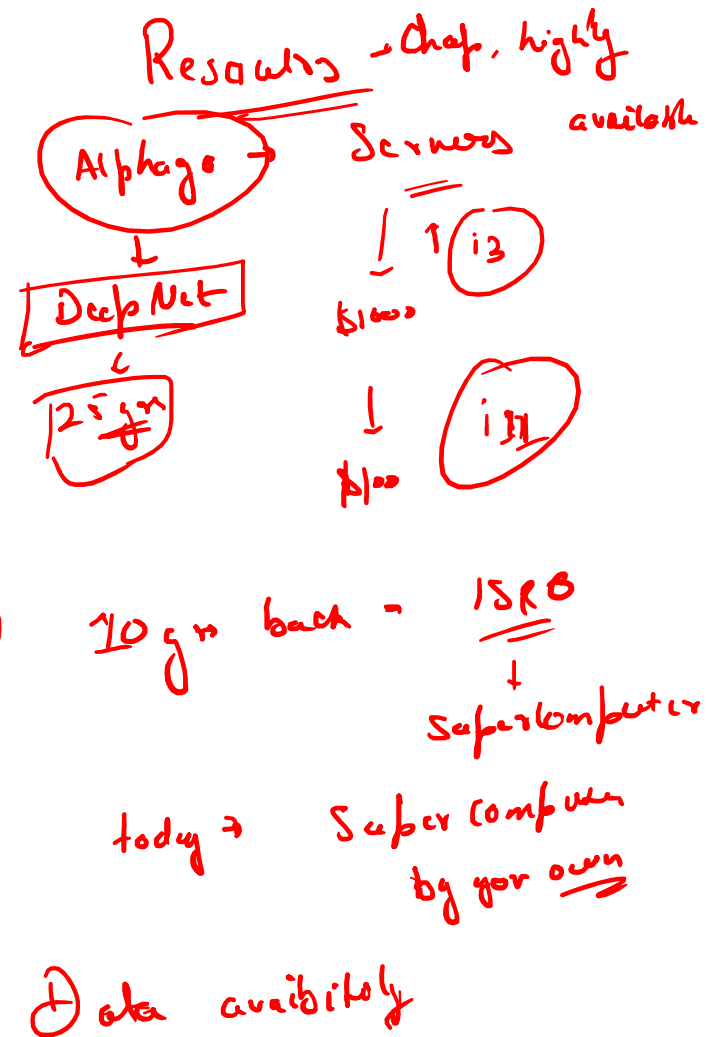 Resources - Cheap, highly available
Alphago → Servers
↓ ↑ i3
DeepNet
$1000
↓
25 yrs
i11
$100
10 yrs back - ISRO
↓
Supercomputer
today → Super computer
by your own
Data availbility